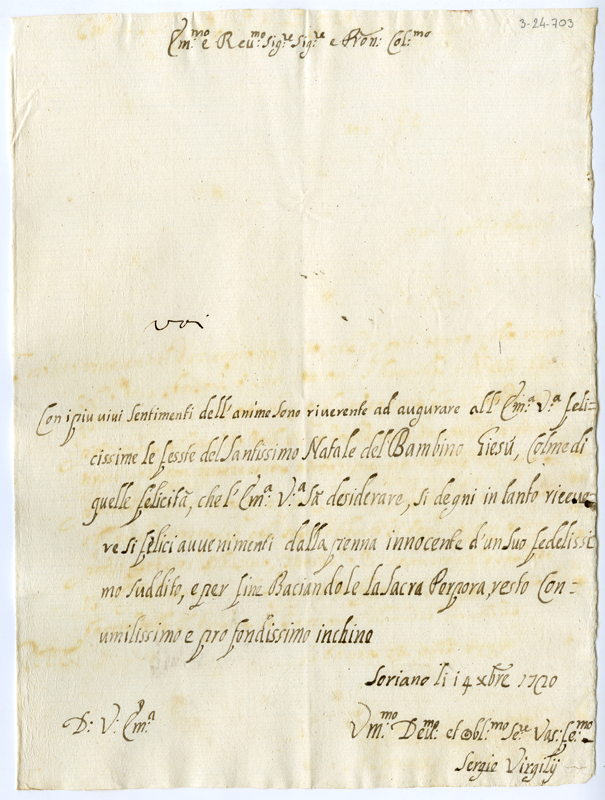 3-24-703
Em:mo e Reu:mo Sig:re Sig:re e Pron: Col:mo
voi
Con i piu uiui sentimenti dell'animo sono riuerente ad augurare all'Em:a V:a feli=
cissime le feste del Santissimo Natale del Bambino Giesú, Colme di
quelle felicitá, che l'Em:a V:a sá desiderare, si degni in tanto riceue=
re si felici auuenimenti dalla penna innocente d'un suo fedelissi
mo suddito, e per fine Baciandole la sacra Porpora, resto Con=
umilissimo e profondissimo inchino
Soriano li 14 xbre 1720
D: V: Em:a
Vm:mo Deu:mo et obl:mo Se:re Vas: fe:mo
Sergio Virgilij